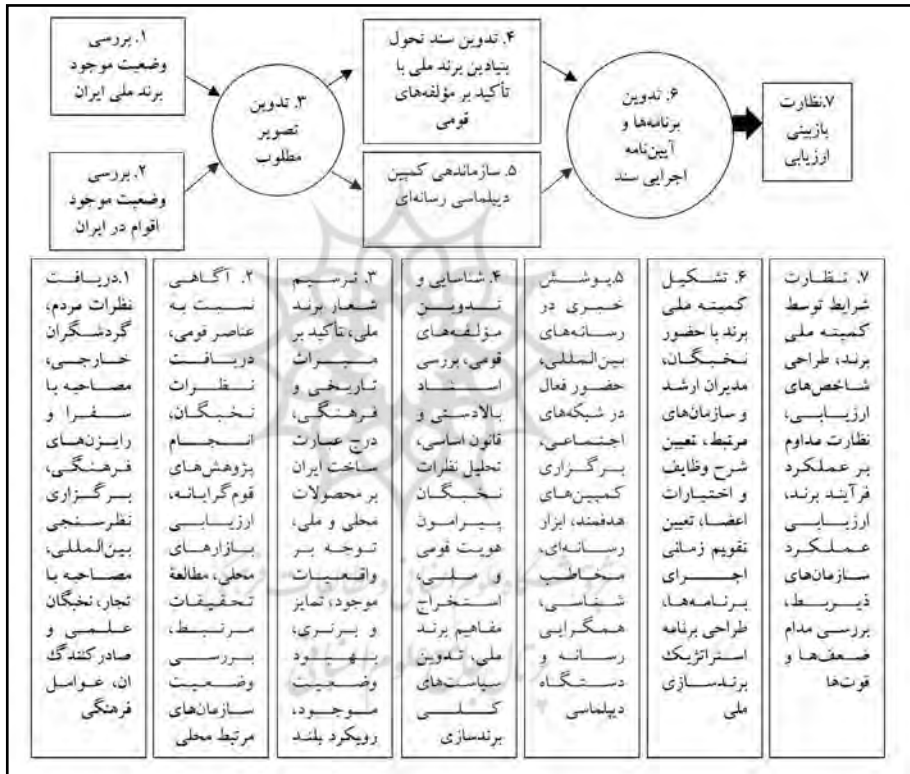 ۱. بررسی
وضعیت موجود
برند ملی ایران
۲. بررسی
وضعیت موجود
اقوام در ایران
۳. تدوین
تصویر
مطلوب
۴. تدوین سند تحول
بنیادین برند ملی با
تأکید بر مؤلفه‌های
قومی
۵. سازماندهی کمپین
دیپلماسی رسانه‌ای
۶. تدوین
برنامه‌ها و
آیین‌نامه
اجرایی سند
۷.نظارت
بازبینی
ارزیابی
۱.دریافت
نظرات مردم،
گردشگران
خارجی،
مصاحبه با
سفرا و
رایزن‌های
فرهنگی،
برگزاری
نظرسنجی
بین‌المللی،
مصاحبه با
تجار، نخبگان
علمی و
صادرکنندگ
ان، عوامل
فرهنگی
۲. آگاهی
نسبت به
عناصر قومی،
دریافت
نظرات
نخبگان،
انجام
پژوهش‌های
قوم‌گرایانه،
ارزیابی
بازارهای
محلی، مطالعة
تحقیقات
مرتبط،
بررسی
وضعیت
سازمان‌های
مرتبط محلی
۳. ترسیم
شعار برند
ملی، تأکید بر
میراث
تاریخی و
فرهنگی،
درج عبارت
ساخت ایران
بر محصولات
محلی و ملی،
توجه بر
واقعیات
موجود، تمایز
و برتری،
بهبود
وضعیت
موجود،
رویکرد بلند
۴. شناسایی و
تدوین
مؤلفه‌های
قومی، بررسی
اسناد
بالادستی و
قانون اساسی،
تحلیل نظرات
نخبگان
پیرامون
هویت قومی
و ملی،
استخراج
مفاهیم برند
ملی، تدوین
سیاست‌های
کلی
برندسازی
۵.پوشش
خبری در
رسانه‌های
بین‌المللی،
حضور فعال
در شبکه‌های
اجتماعی،
برگزاری
کمپین‌های
هدفمند، ابزار
رسانه‌ای،
مخاطب
شناسی،
همگرایی
رسانه و
دستگاه
دیپلماسی
۶. تشکیل
کمیته ملی
برند با حضور
نخبگان،
مدیران ارشد
و سازمان‌های
مرتبط، تعیین
شرح وظایف
و اختیارات
اعضا، تعیین
تقویم زمانی
اجرای
برنامه‌ها،
طراحی برنامه
استراتژیک
برندسازی
ملی
۷. نظارت
شرایط توسط
کمیته ملی
برند، طراحی
شاخص‌های
ارزیابی،
نظارت مداوم
بر عملکرد
فرآیند برند،
ارزیابی
عملکرد
سازمان‌های
ذیربط،
بررسی مدام
ضعف‌ها و
قوت‌ها
پژوهشگاه علوم انسانی و مطالعات فرهنگی
پرتال جامع علوم انسانی